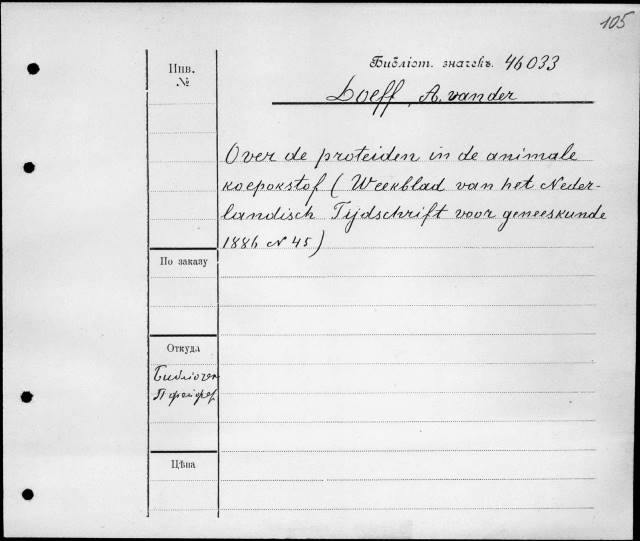 105
Инв.
№
Библіот. значекъ. 46033
Loeff, A. van der
Over de proteiden in de animale
koepokstof (Weekblad van het Neder-
landisch Tijdschrift voor geneeskunde
1886 N 45)
По заказу
Откуда
Библіотек
Пфейфер
Цѣна